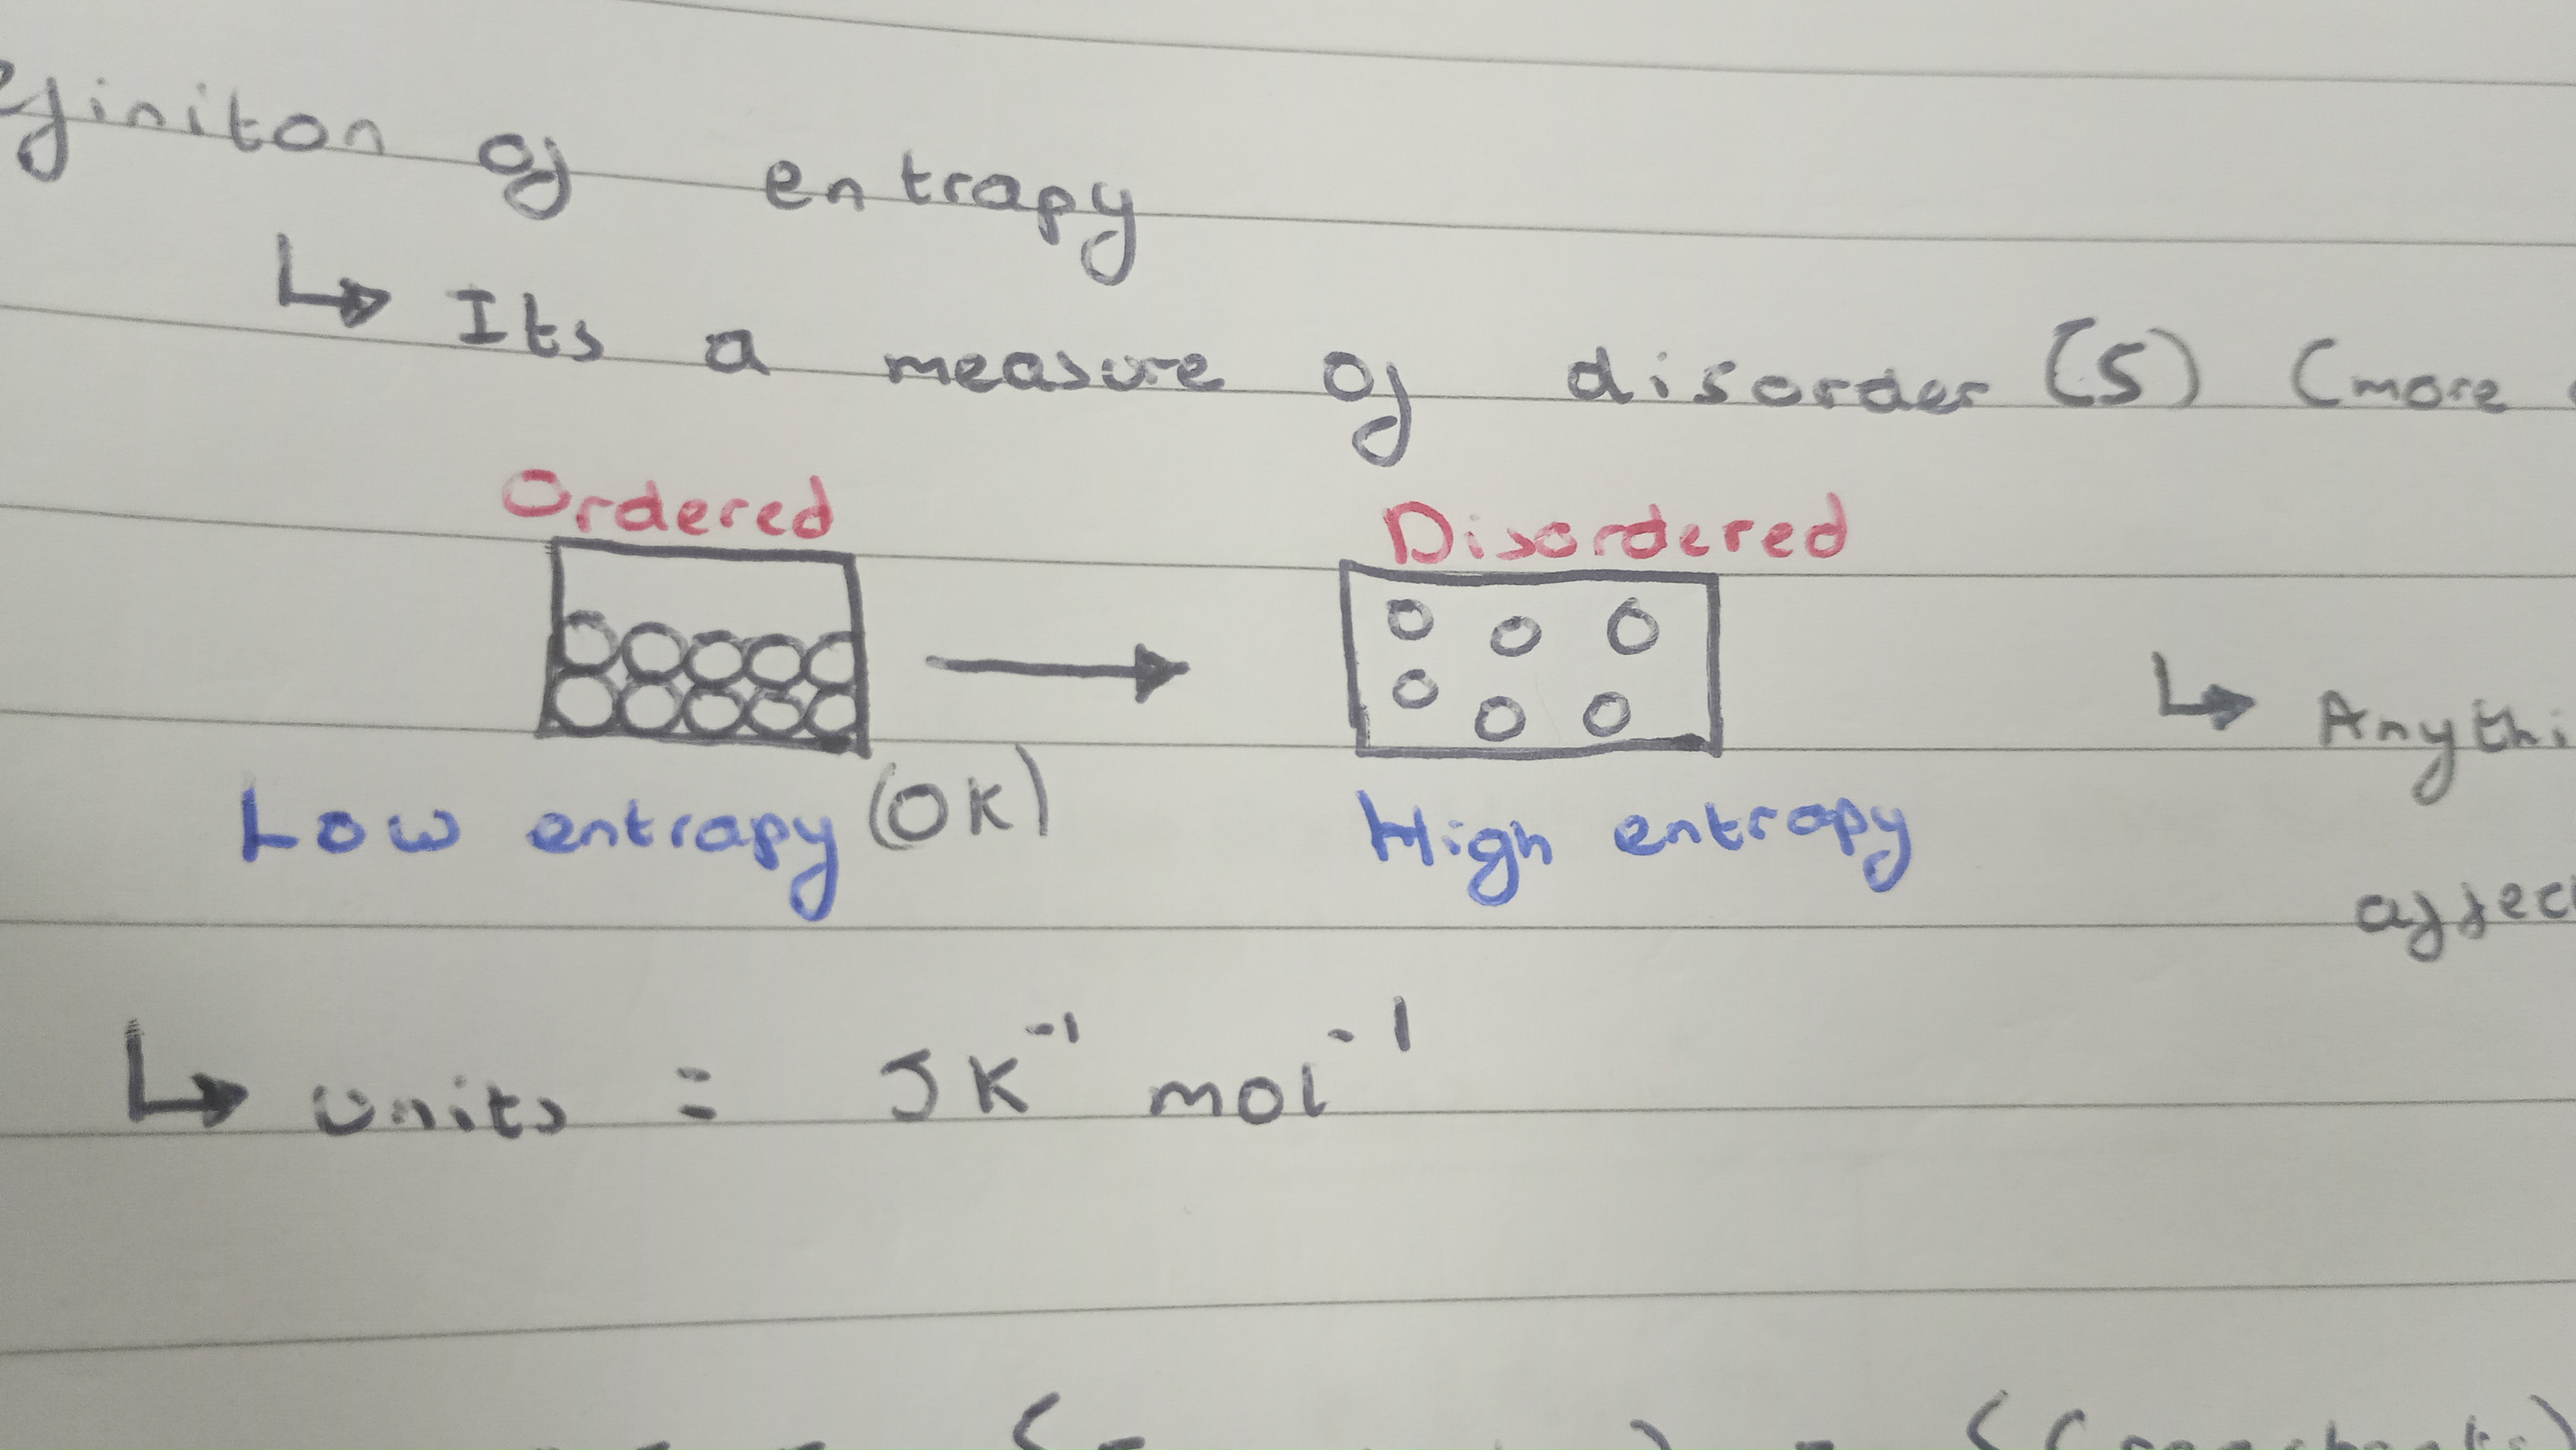 efiniton of entrapy
↳ Its a measure of disorder (S) (more
Ordered Disordered
↳ Anythi
Low entrapy (OK) High entrapy
affec
↳ units = JK⁻¹ mol⁻¹